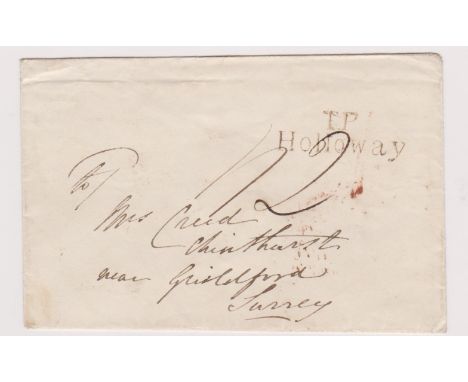 T.P
Holloway
12
Mrs Creed
Chinthurst
near Guildford
Surrey